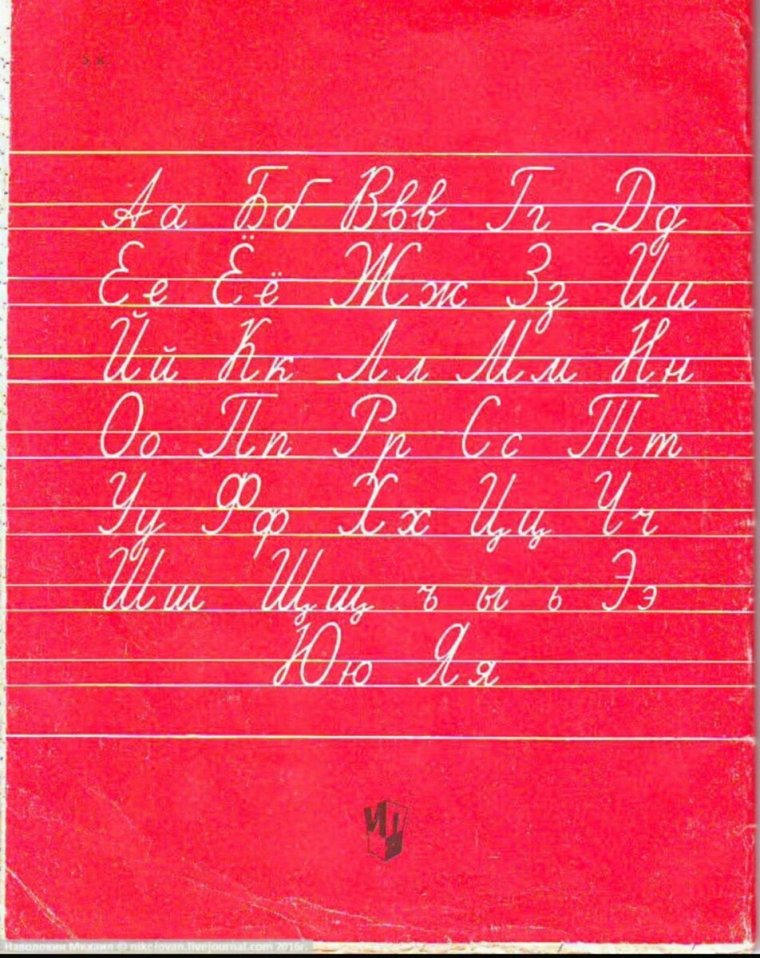 Аа Бб Ввв Гг Дд
Ее Ёё Жж Зз Ии
Йй Кк Лл Мм Нн
Оо Пп Рр Сс Тт
Уу Фф Хх Цц Чч
Шш Щщ ъ ы ь Ээ
Юю Яя
Наволокин Михаил © nikolovan.livejournal.com 2016г.